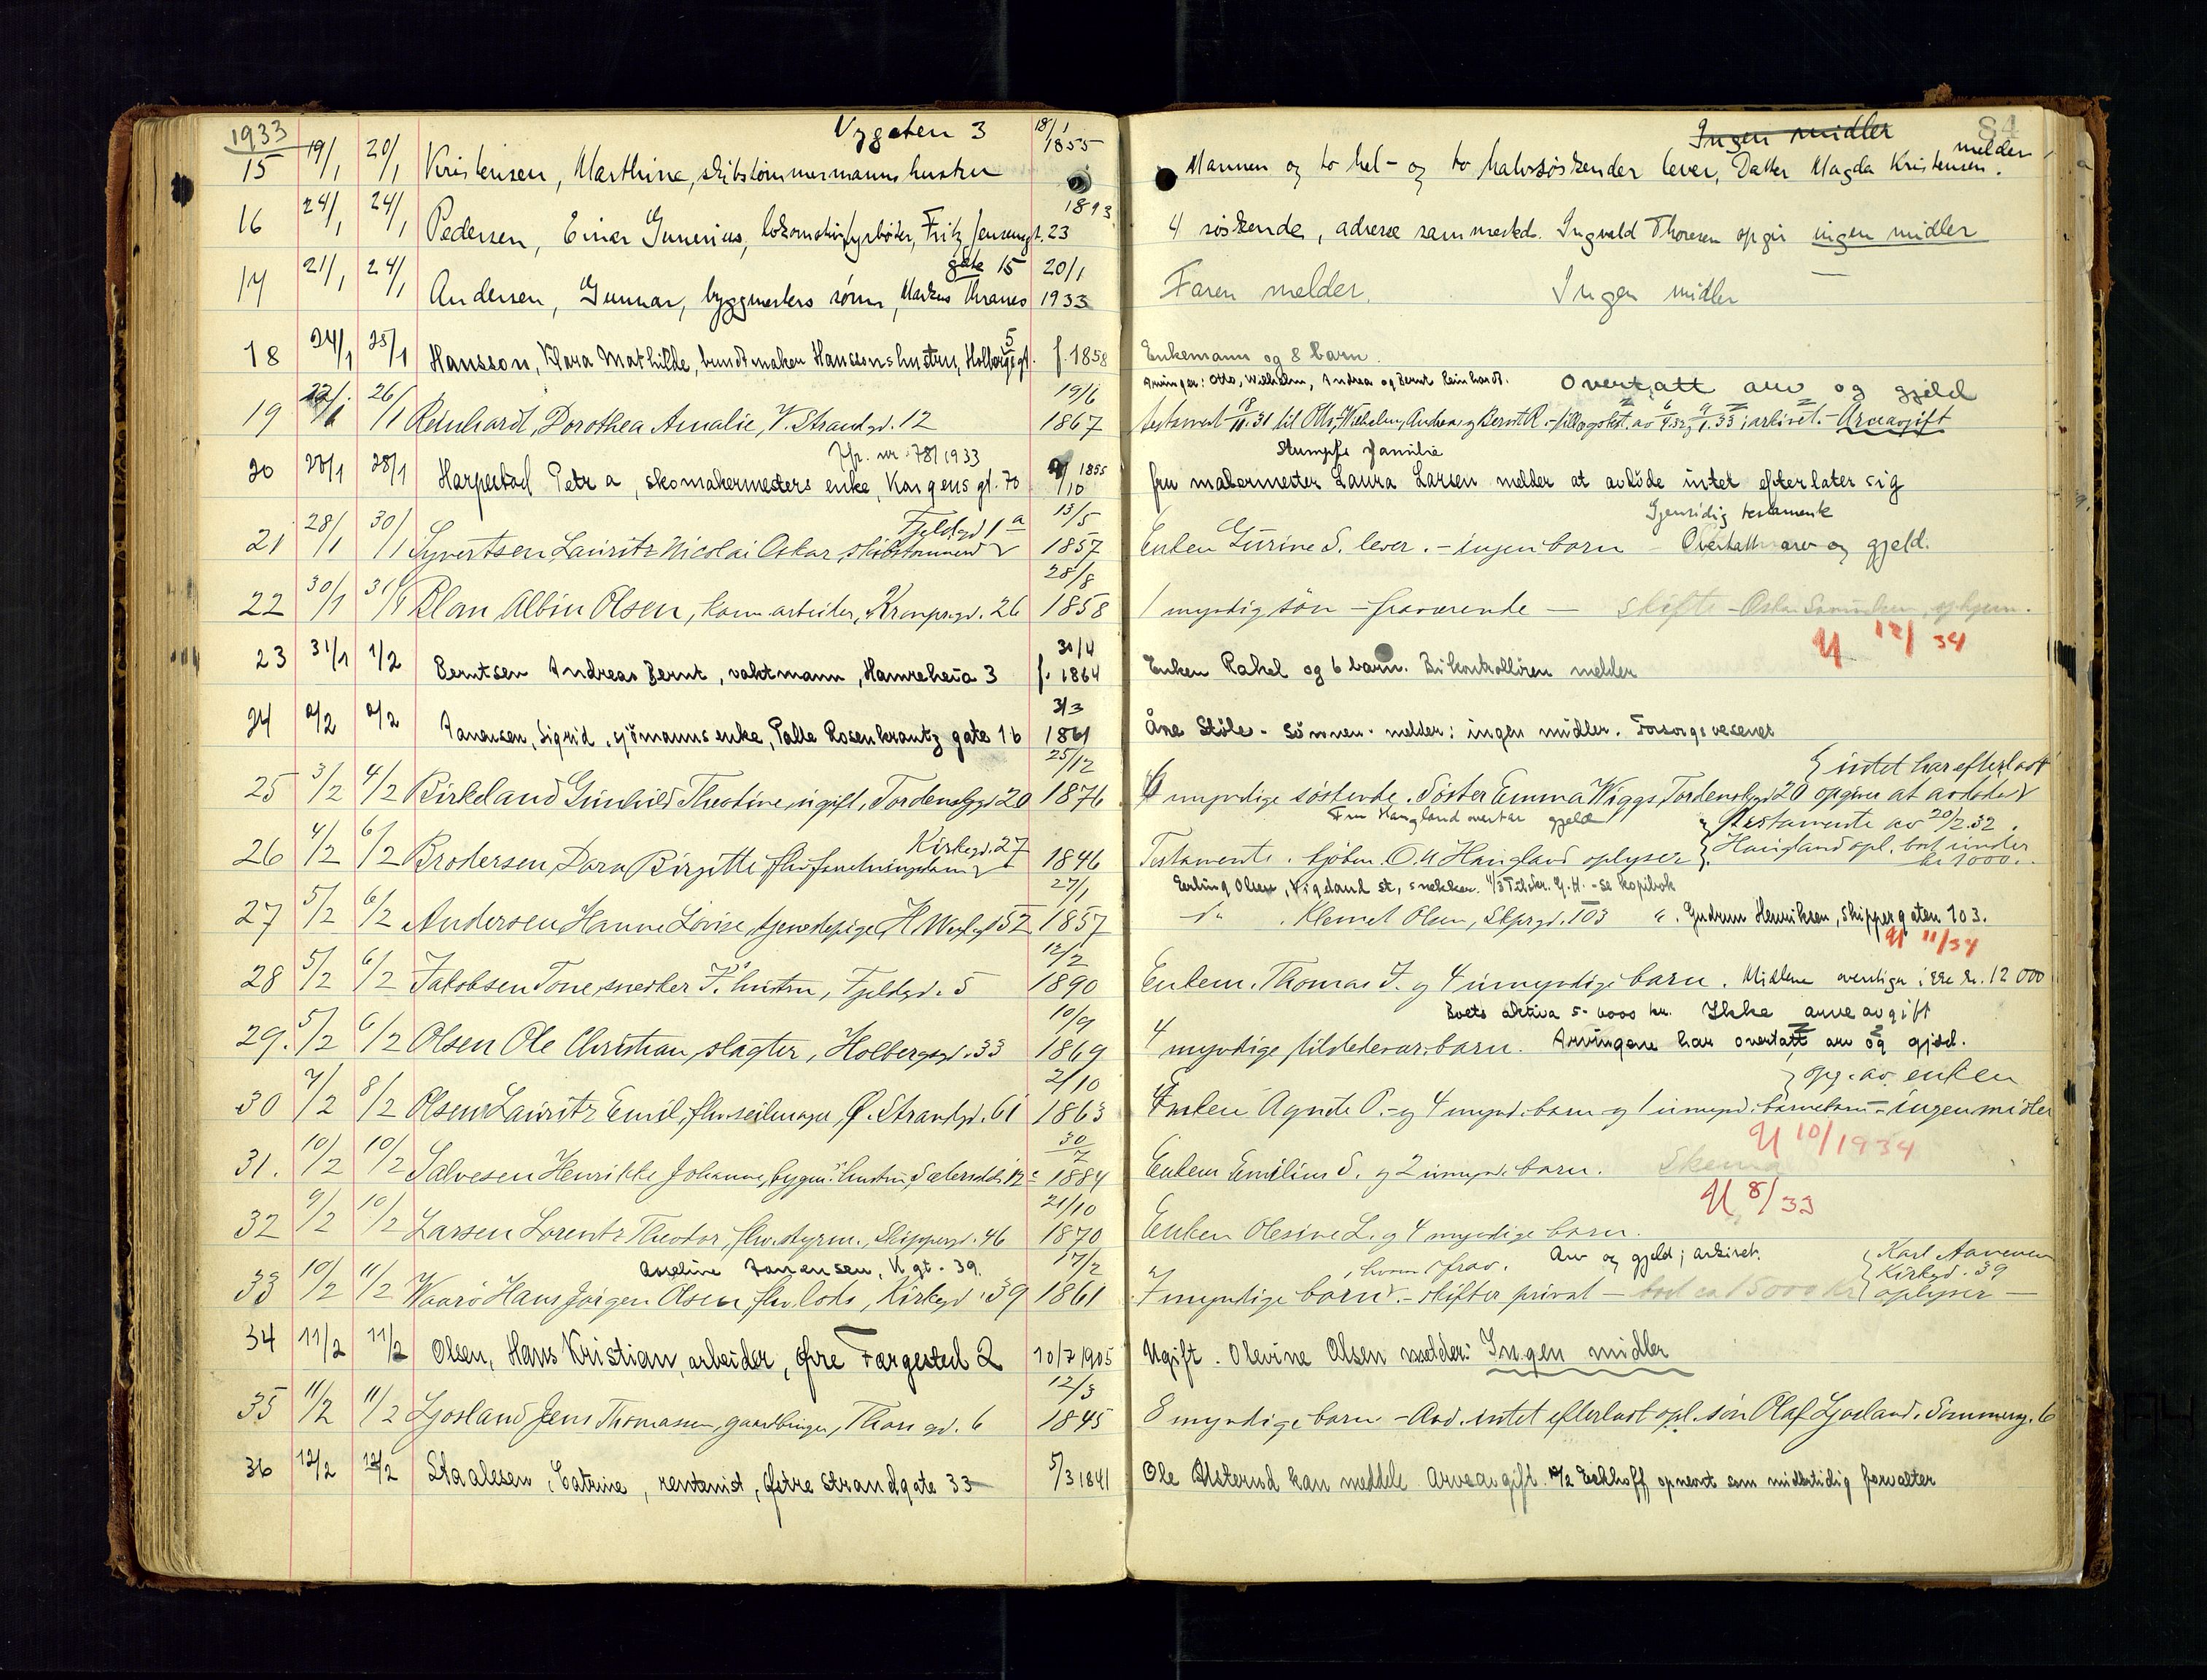 1933 Vygaten 3 18/1 Ingen midler 84
15 19/1 20/1 Kristensen, Marthine, skibstømmermanns hustru 1855 Mannen og to hel- og to halvsøskender lever, Datter Magda Kristensen. melder
16 24/1 24/1 Pedersen, Einar Gunerius, lokomotivfyrbøter, Fritz Jensensgt. 23 1893 4 søskende, adresse sammesteds. Ingvald Thoresen opgir ingen midler
gate 15 20/1
17 21/1 24/1 Andersen, Gunnar, byggmesters sønn, Markus Thranes 1933 Faren melder. Ingen midler
18 24/1 25/1 Hansson, Klara Mathilde, bundtmaker Hanssons hustru, Holbergsgt. 5 f. 1858 Enkemann og 8 barn.
19/6 Arvinger: Otto, Wilhelm, Andrea og Bernt Reinhardt. Overtatt arv og gjeld
19 26/1 Reinhardt, Dorothea Amalie, V. Strandgd. 12 1867 testament til Otto, Wilhelm, Andrea og Bernt R. i arkivet. - Arveavgift
Jfr. nr. 78/1933 Stumpfs familie
20 28/1 28/1 Harpestad Petra, skomakermesters enke, Kongens gt. 70 /10 1855 fru malermester Laura Larsen melder at avdøde intet efterlater sig
Fjeldgd 1 a 13/5 Gjensidig testamente
21 28/1 30/1 Syvertsen Lauritz Nicolai Oskar, skibstømmerm 1857 Enken Gurine S. lever. - ingen barn - Overtatt arv og gjeld.
28/8
22 30/1 31/1 Blom Albin Olsen, kom. arbeider, Kronprgd. 26 1858 1 myndig søn - fraværende - skifte
U 12/34
30/4
23 31/1 1/2 Berntsen Andreas Bernt, vaktmann, Hamreheia 3 f. 1864 Enken Rakel og 6 barn. Bikontrolløren melder
3/3
24 2/2 2/2 Aanensen, Sigrid, sjømanns enke, Palle Rosenkrantz gate 16 1861 Åne Støle - Sønnen - melder: ingen midler. Forsorgsvesenet
25/12 intet har efterladt
25 3/2 4/2 Birkeland Gunhild Theodine, ugift, Tordenskgd 20 1876 6 myndige søskende. Søster Emma Wiggs, Tordenskgd 20 opgiver at avdøde
Fru Haugland overtar gjeld Testamente av 20/2 32.
Kirkegd. 27
26 4/2 6/2 Brodersen, Dora Birgitte, fhv. 1846 Testamente. kjøbm. O. M Haugland oplyser Haugland opl. bot under kr 1000.-
27/1 Erling Olsen, Vigeland st., snekker. 4/3 Tilskr. G. H. - se kopibok
27 5/2 6/2 Andersen Hanne Lovise, tjenestepige, H. Wergl. 52 1857 do . Klemet Olsen, Skprgd. 103 ". Gudrun Henriksen, Skippergaten 103.
U 11/34
12/2
28 5/2 6/2 Jakobsen Tone, snekker J.'s hustru, Fjeldgd. 5 1890 Enkem. Thomas J. og 4 umyndige barn. Midlene overstiger ikke kr. 12 000
10/9 Boets aktiva 5-6000 kr. Ikke arveavgift
29. 5/2 6/2 Olsen Ole Christian, slagter, Holbergsgd. 33 1869 4 myndige tilstedevær. barn. Arvingene har overtatt arv og gjeld.
2/10 opg. av enken
30 7/2 8/2 Olsen Lauritz Emil, fhv. seilmager, Ø. Strandgd. 61 1863 Enken Agnete O. - og 4 mynd. barn og 1 umynd. barnebarn - ingen midler
U 10/1934
30/7
31. 10/2 10/2 Salvesen Henrikke Johanne, bygm. hustru, 12c 1884 Enkem Emilius S. og 2 umynd. barn. Skema
U 8/33
21/10
32 9/2 10/2 Larsen Lorentz Theodor, fhv. styrm., Skippergd. 46 1870 Enken Olesine L. og 4 myndige barn.
Asseline Aanensen, K gt. 39. 17/2 frav. Arv og gjeld i arkivet. Karl Aanensen
Kirkegd. 39
33 10/2 11/2 Waarø Hans Jørgen Olsen fhv. lods, Kirkegd. 39 1861 7 myndige barn. - skifter privat - bot ca 15000 kr oplyser -
34 11/2 11/2 Olsen, Hans Kristian, arbeider, øvre Færgested 2 10/7 1905 Ugift. Olevine Olsen melder: Ingen midler
12/3
35 11/2 11/2 Ljosland Jens Thomassen, gaardbruger, Thors gd. 6 1845 8 myndige barn - Avd. intet efterladt opl. søn Olaf Ljosland. 6
36 12/2 12/2 Staalesen, Catrine, rentenist, Østre Strandgate 33 5/3 1841 Ole Alsterud kan meddele. Arveavgift. Eckhoff opnevnt som midlertidig forvalter